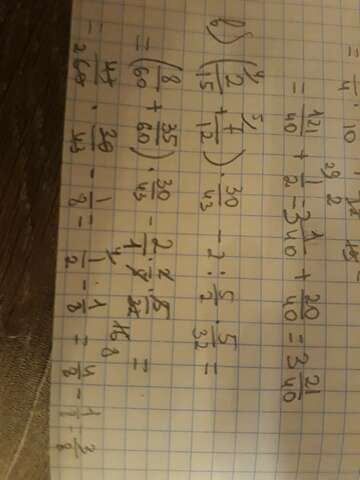 = 121/40 + 1/2 = 3 1/40 + 20/40 = 3 21/40
b) (2/15 + 7/12) · 30/43 - 2 : 5/2 · 5/32 =
= (8/60 + 35/60) · 30/43 - 2/1 · 2/5 · 5/32 =
= 43/60 · 30/43 - 1/8 = 1/2 - 1/8 = 4/8 - 1/8 = 3/8